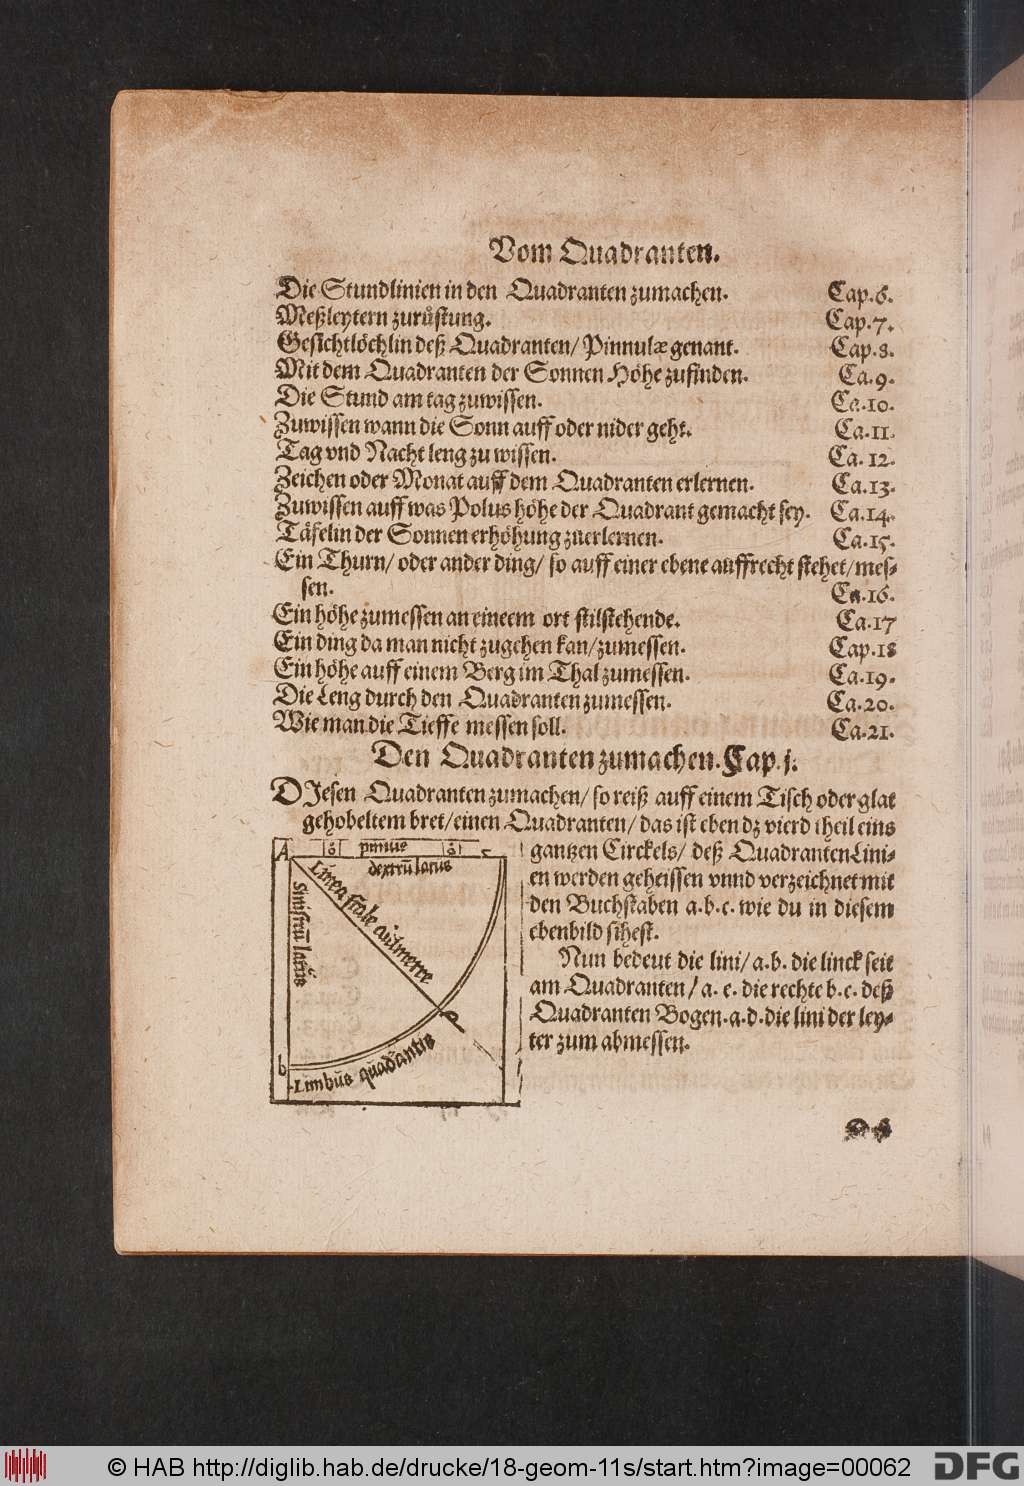 Vom Quadranten.
Die Stundlinien in den Quadranten zumachen. Cap.6.
Meßleytern zurůstung. Cap.7.
Gesichtlöchlin deß Quadranten/ Pinnulæ genant. Cap.8.
Mit dem Quadranten der Sonnen Höhe zufinden. Ca.9.
Die Stund am tag zuwissen. Ca.10.
Zuwissen wann die Sonn auff oder nider geht. Ca.11.
Tag vnd Nacht leng zu wissen. Ca.12.
Zeichen oder Monat auff dem Quadranten erlernen. Ca.13.
Zuwissen auff was Polus höhe der Quadrant gemacht sey. Ca.14.
Täfelin der Sonnen erhöhung zuerlernen. Ca.15.
Ein Thurn/ oder ander ding/ so auff einer ebene auffrecht stehet/ mes-
sen. Ca.16.
Ein höhe zumessen an eineem ort stilstehende. Ca.17
Ein ding da man nicht zugehen kan/ zumessen. Cap.18
Ein höhe auff einem Berg im Thal zumessen. Ca.19.
Die Leng durch den Quadranten zumessen. Ca.20.
Wie man die Tieffe messen soll. Ca.21.
Den Quadranten zumachen. Cap.j.
DIesen Quadranten zumachen/ so reiß auff einem Tisch oder glat
gehobeltem bret/ einen Quadranten/ das ist eben dz vierd theil eins
gantzen Circkels/ deß Quadranten Lini-
en werden geheissen vnnd verzeichnet mit
den Buchstaben a.b.c. wie du in diesem
ebenbild sihest.
Nun bedeut die lini/ a.b. die linck seit
am Quadranten/ a. c. die rechte b.c. deß
Quadranten Bogen. a.d. die lini der ley-
ter zum abmessen.
A
c
dextrū latus
Linea scale
Sinistrū
b
Limbus quadrantis
© HAB http://diglib.hab.de/drucke/18-geom-11s/start.htm?image=00062
DFG